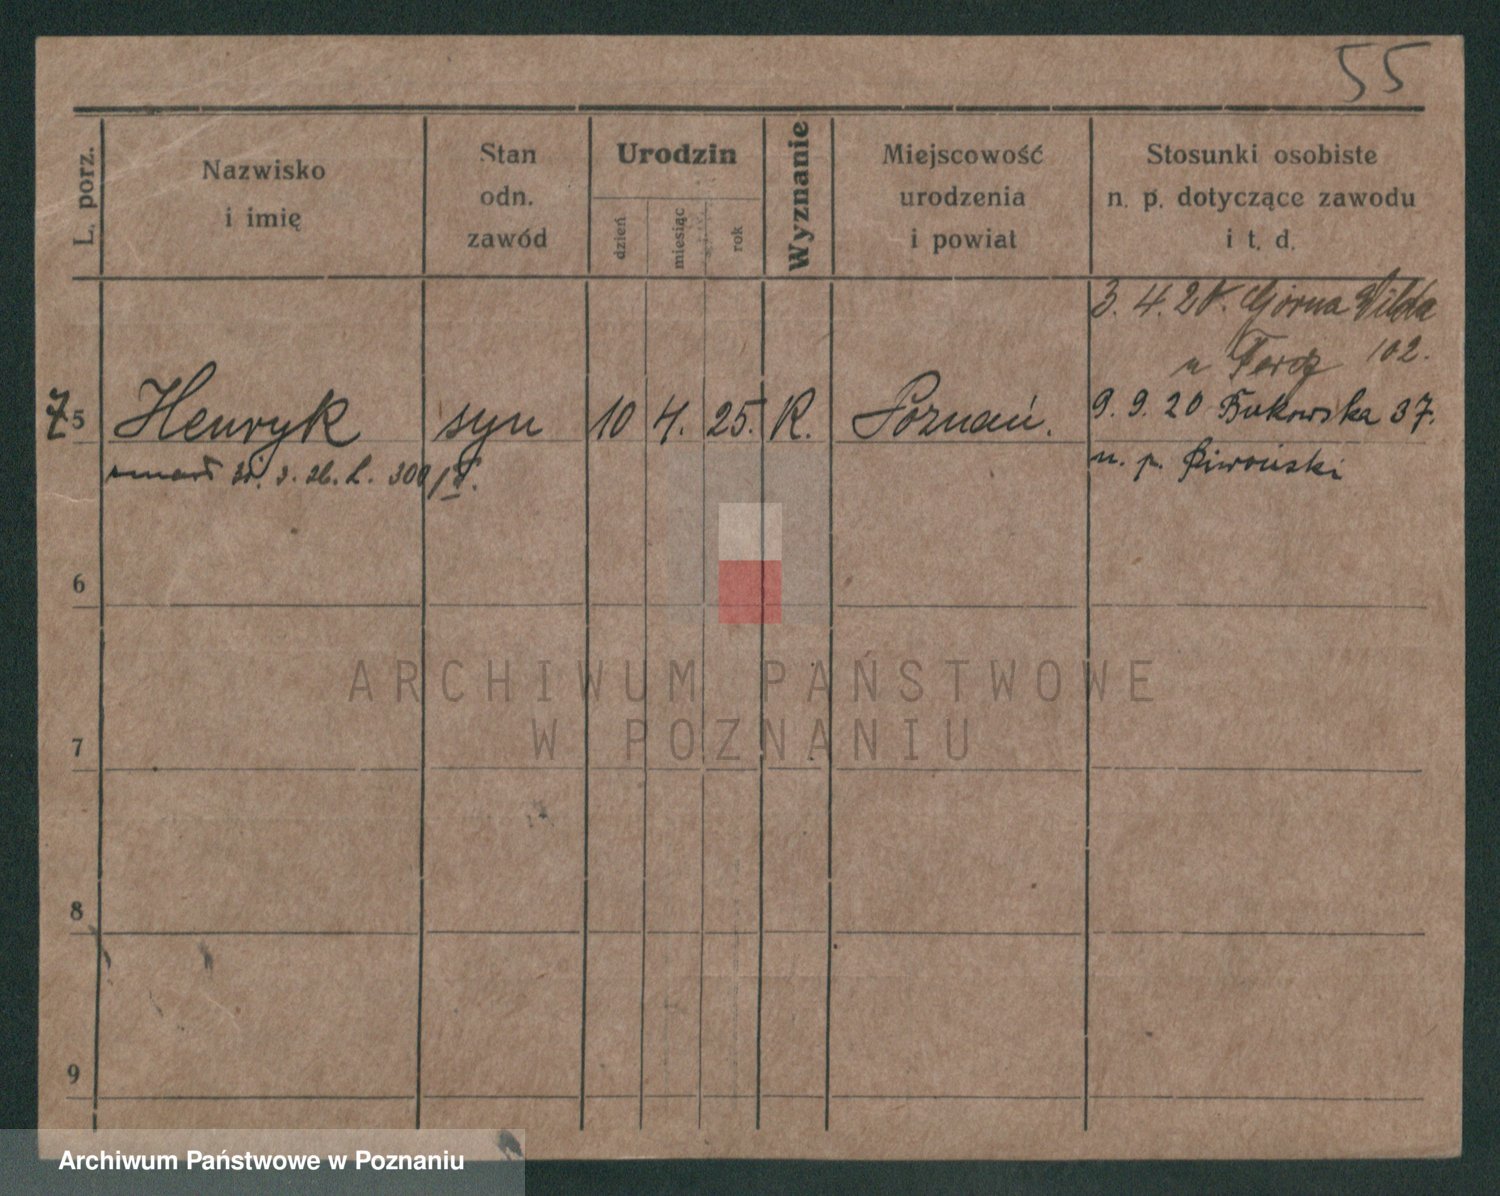 55
L. porz.
Nazwisko
i imię
Stan
odn.
zawód
Urodzin
dzień
miesiąc
rok
Wyznanie
Miejscowość
urodzenia
i powiat
Stosunki osobiste
n. p. dotyczące zawodu
i t. d.
3. 4. 20. Górna Wilda
102.
7 5 Henryk syn 10 4. 25. R. Poznań. 9. 9. 20 Bukowska 37.
umarł
u. p.
6
ARCHIWUM PAŃSTWOWE
W POZNANIU
7
8
9
Archiwum Państwowe w Poznaniu